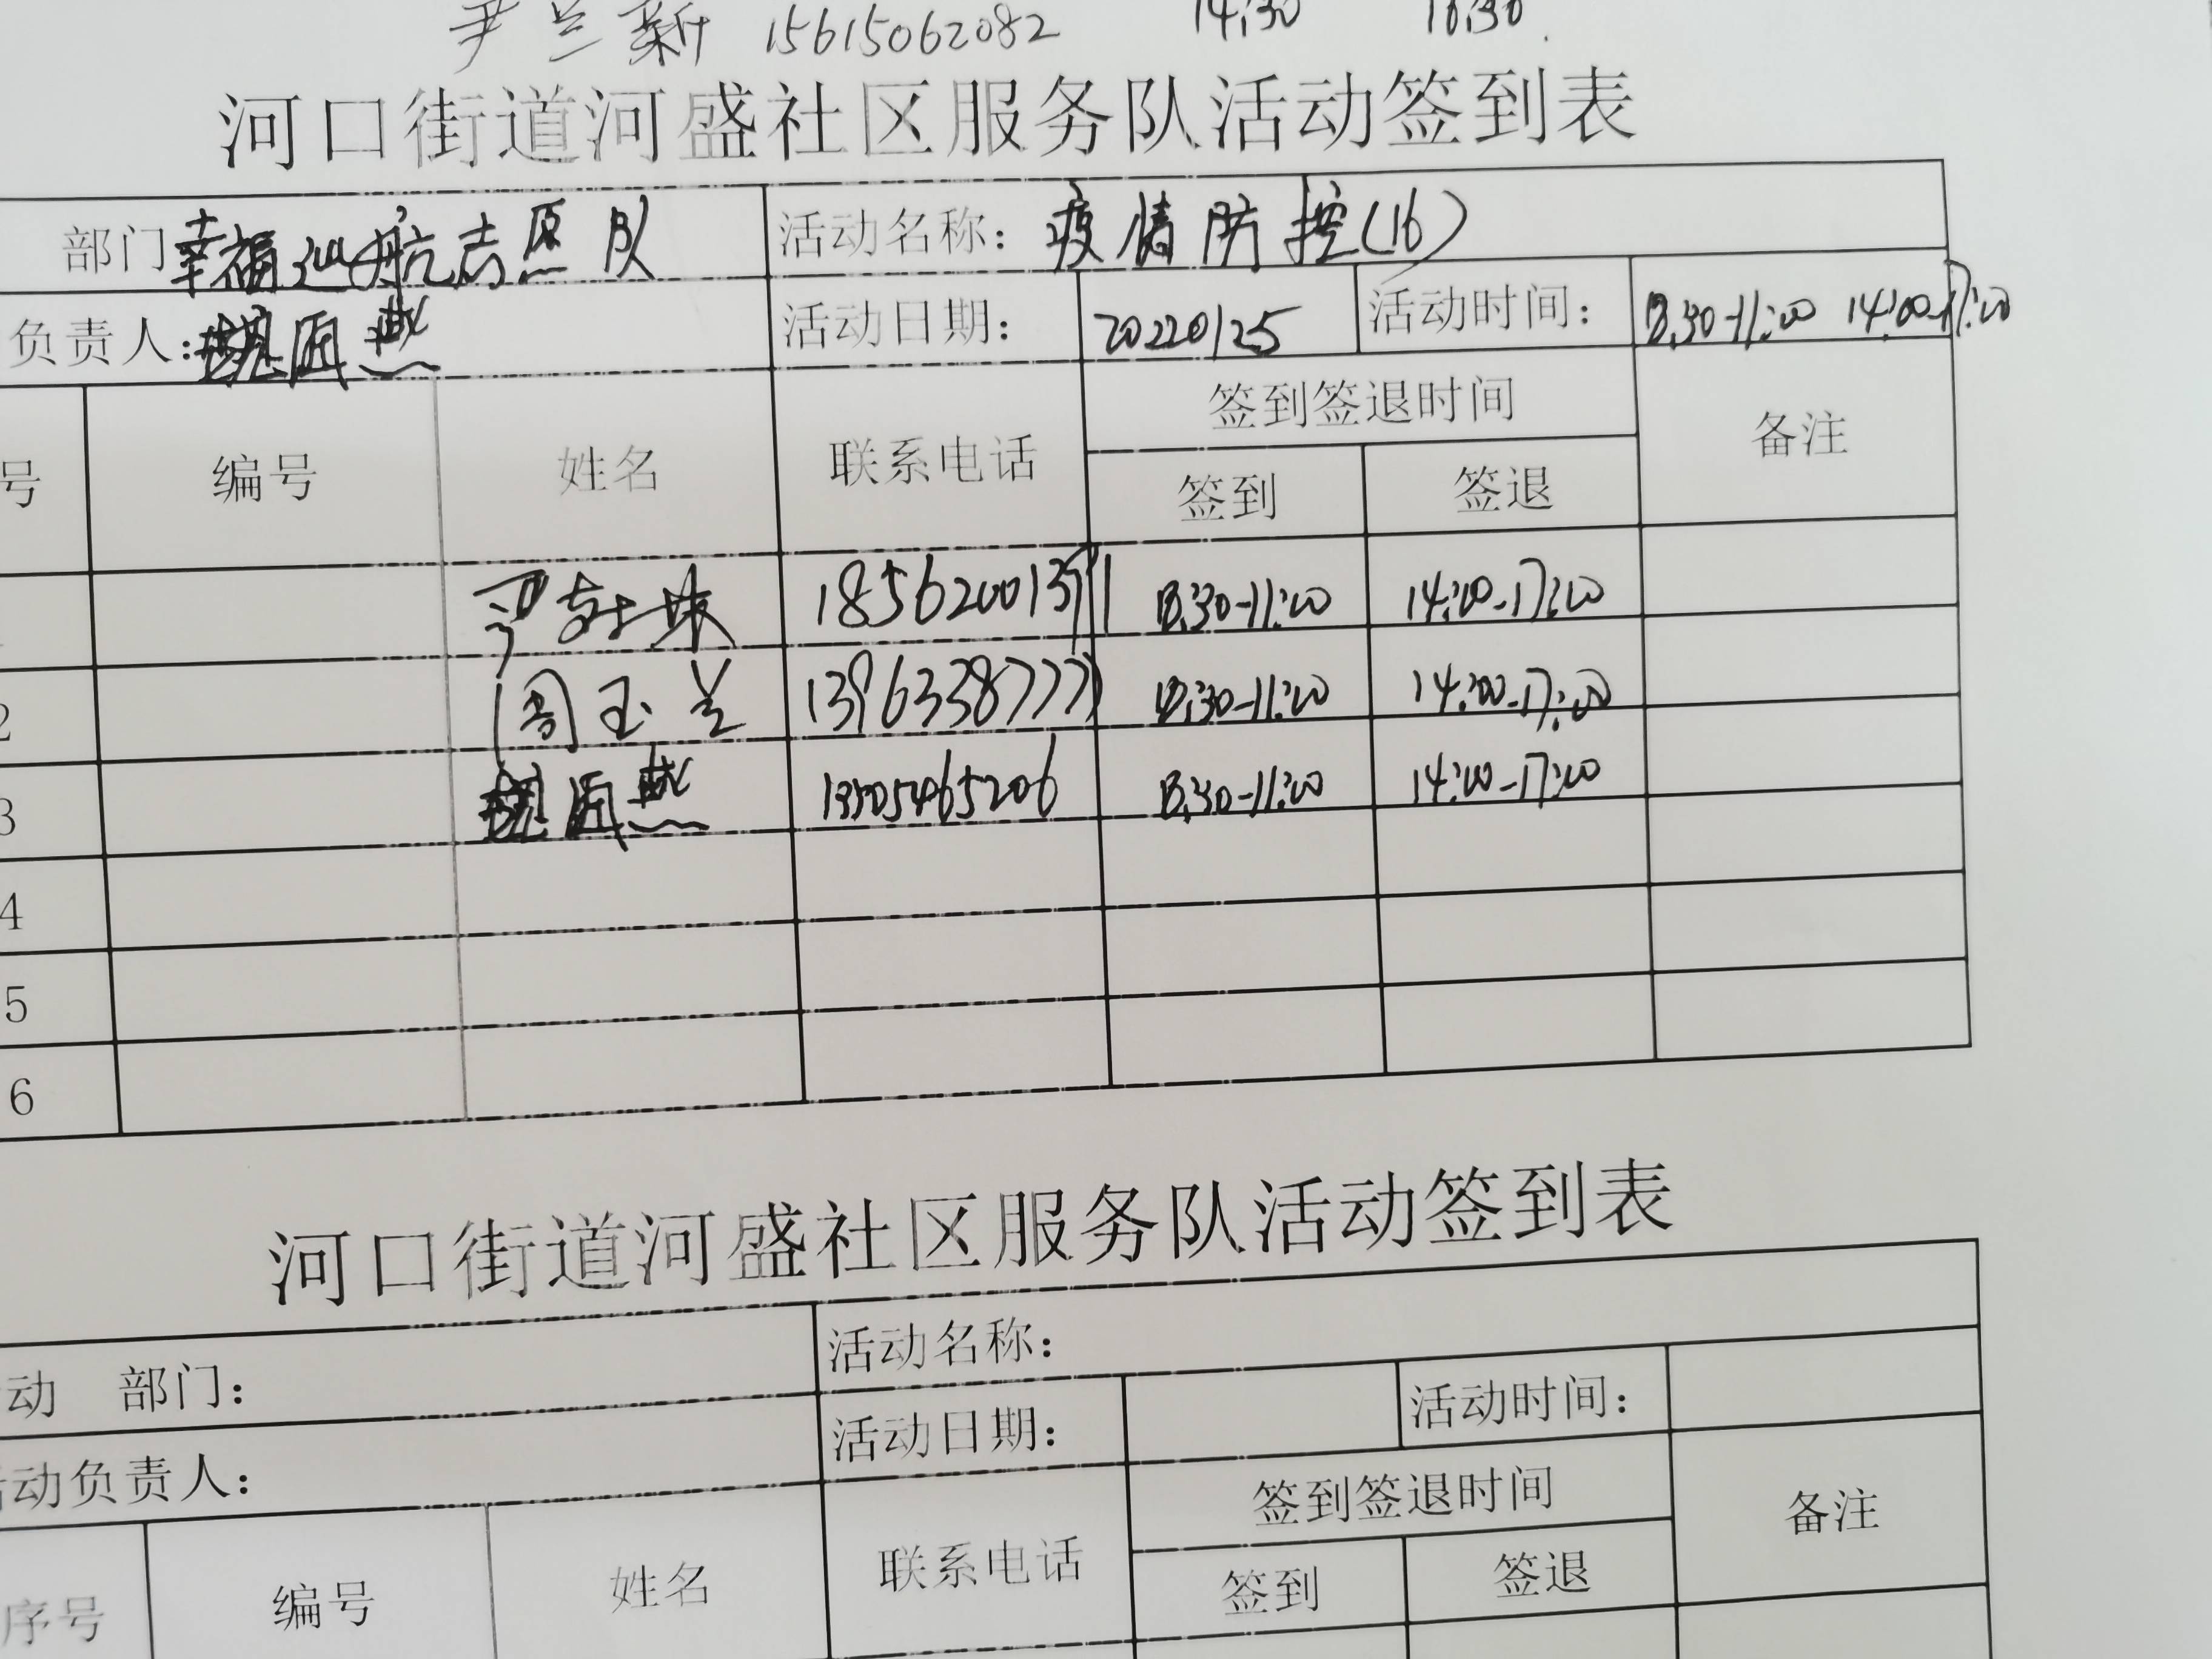 尹兰新 15615062082 14:30 16:30
河口街道河盛社区服务队活动签到表
部门 幸福 航志愿队 活动名称: 疫情防控(16)
负责人: 活动日期: 20220125 活动时间: 8:30-11:00 14:00-17:00
签到签退时间
号 编号 姓名 联系电话 备注
签到 签退
8:30-11:00 14:00-17:00
2 周玉兰 8:30-11:00 14:00-17:00
3 8:30-11:00 14:00-17:00
4
5
6
河口街道河盛社区服务队活动签到表
动 部门: 活动名称:
动负责人: 活动日期: 活动时间:
签到签退时间
序号 编号 姓名 联系电话 备注
签到 签退